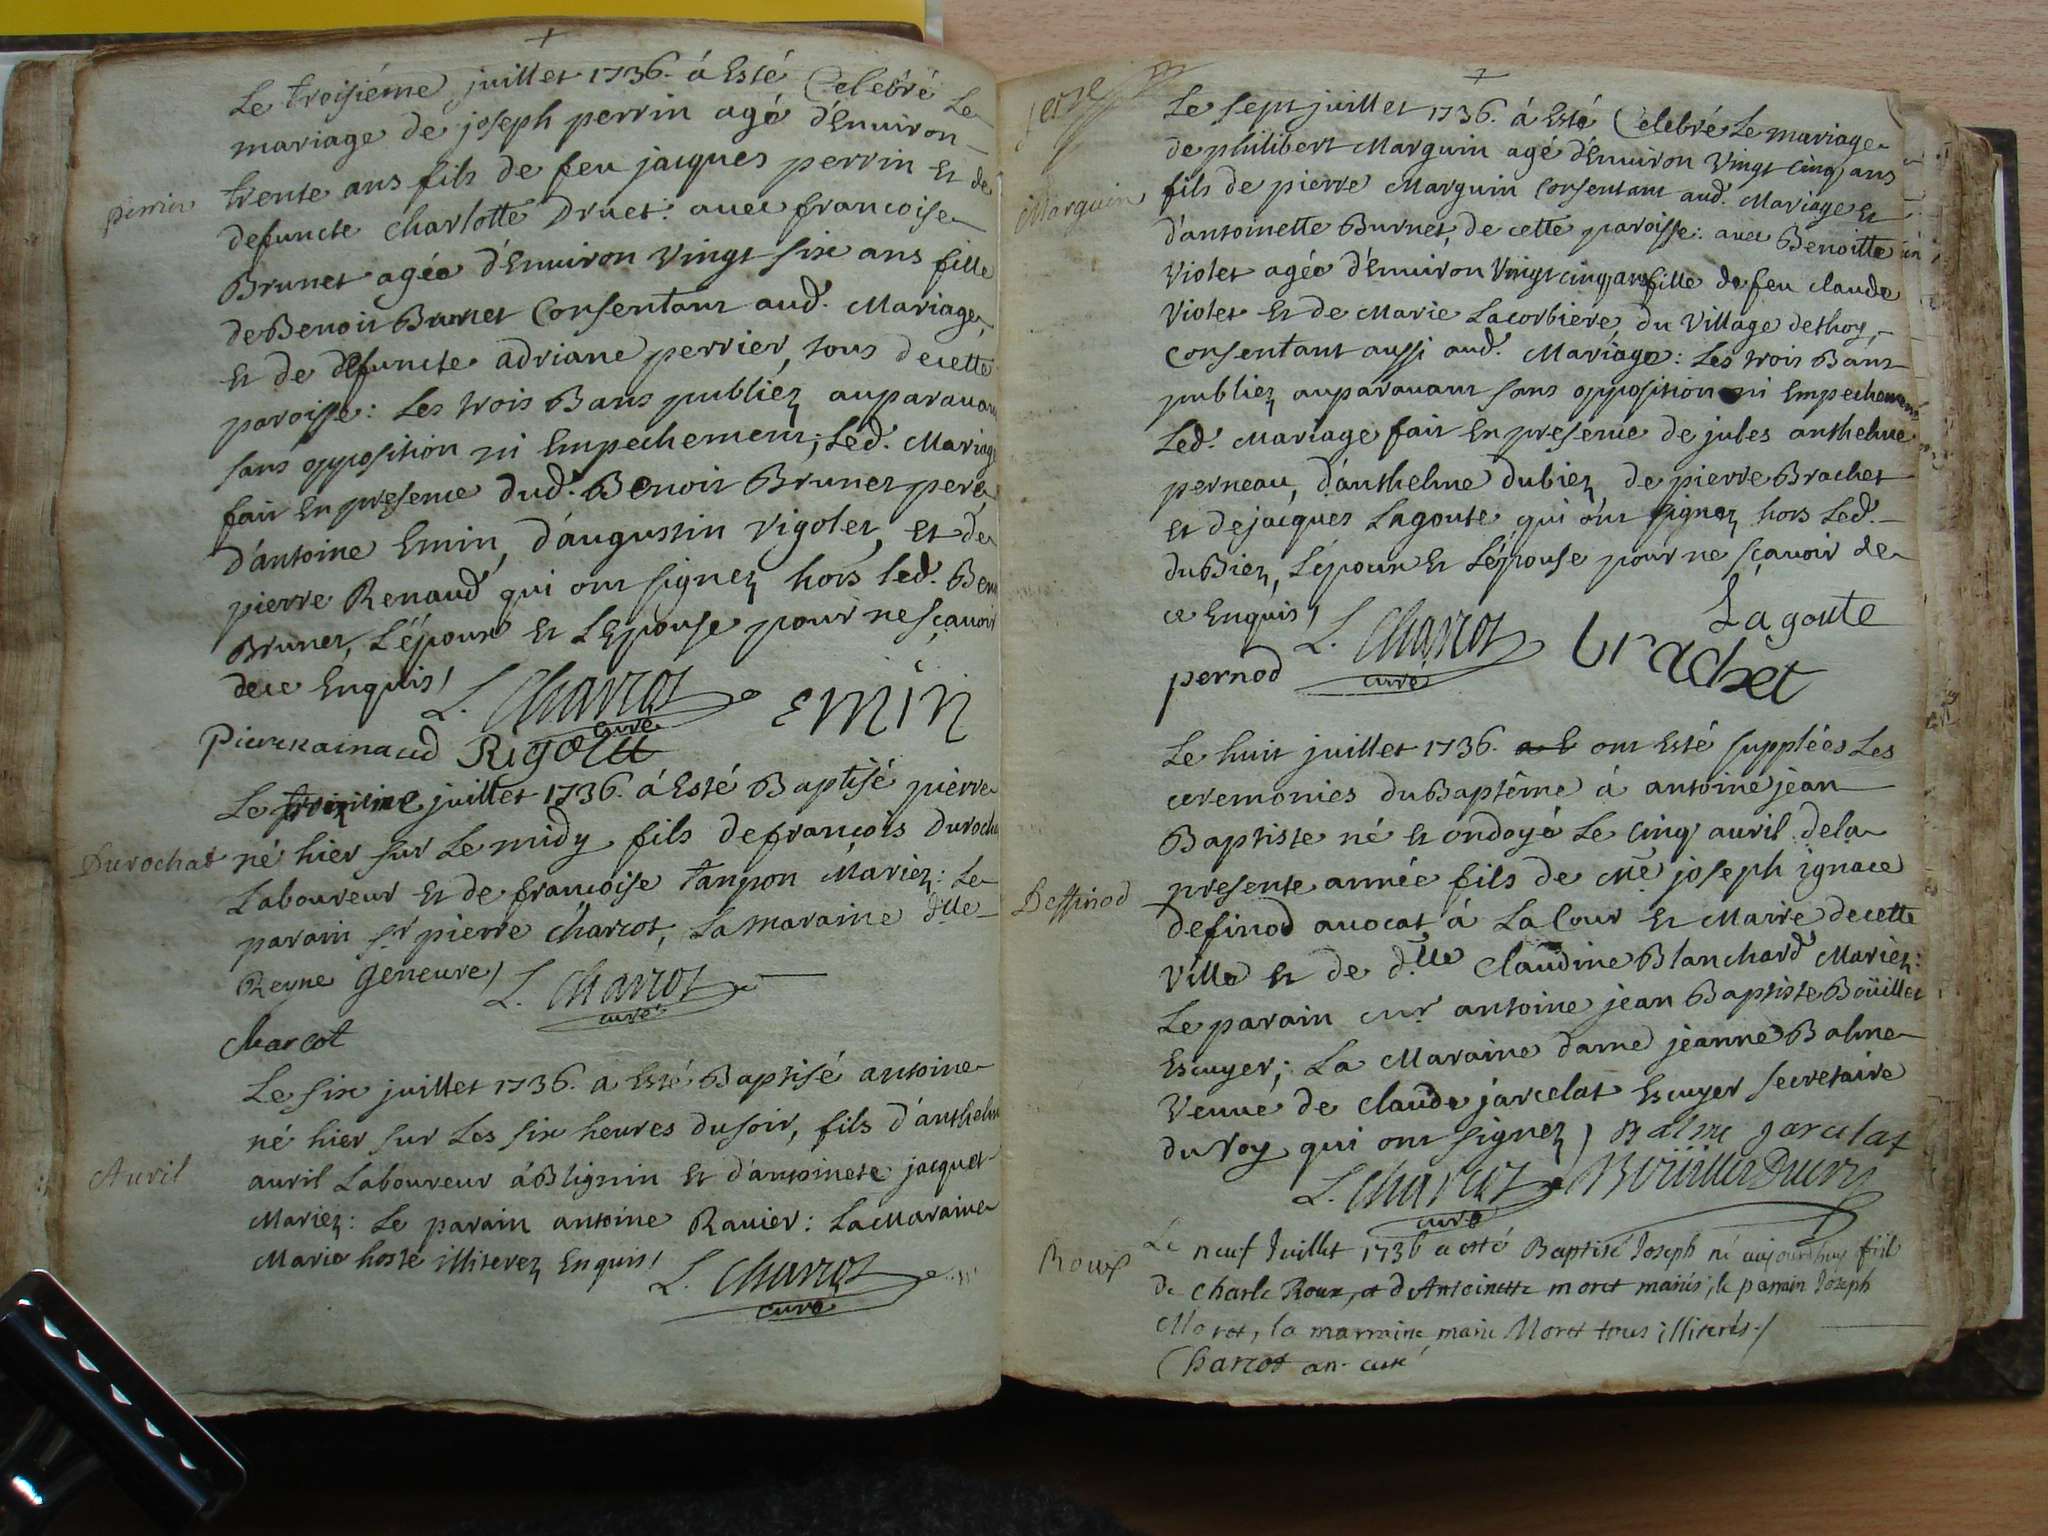 Le troisiéme juillet 1736. á Esté Celebré Le
mariage de joseph perrin agé d'Enuiron
perrin
trente ans fils de feu jacques perrin et de
defuncte Charlotte Druet: auec francoise
Brunet agée d'Enuiron Vingt six ans fille
de Benoit Brunet Consentant aud. Mariage,
et de defuncte adriane perrier, tous decette
paroisse: Les trois Bans publiéz auparauant
sans opposition ni Empechement; Led. Mariage
fait En presence dud. Benoit Brunet pere
d'antoine Emin, d'augustin Vigolet, et de
pierre Renaud qui ont signez hors led. Ben
Brunet, L'époux et L'Epouse pour ne sçauoir
dece Enquis/
L. Charcot curé
emin
Pierre rainaud Rigolet
Le troisiéme juillet 1736. á Esté Baptisé pierre
Durochat
né hier sur Le midy fils defrançois Durocha
Laboureur et de francoise tanpon Mariez: Le
parain sr pierre Charcot, La maraine dlle
Reyne Geneure/ L. Charcot curé
Charcot
Le six juillet 1736. a Esté Baptisé antoine
né hier sur Les six heures dusoir, fils d'anthelm
Auril
auril Laboureur á Blignin et d'antoinete jacquet
Mariez: Le parain antoine Rauier: La Maraine
Marie hoste illiterez Enquis/
L. Charcot curé
Le sept juillet 1736. á Esté Celebré Le mariage
de philibert Marguin agé d'Enuiron Vingt cinq ans
Marguin
fils de pierre Marguin Consentant aud. Mariage et
d'antoinette Burnet, de cette paroisse: auec Benoitte
Violet agée d'Enuiron Vingt cinq ans fille de feu claude
Violet et de Marie Lacorbiere, du Village dethoy,
Consentant aussi aud. Mariage: Les trois Bans
publiez auparauant sans opposition ni Empechement
Led. Mariage fait En presence de jules anthelme
perneau, d'anthelme dubiez, de pierre Brachet
et de jacques Lagoute qui ont signez hors Led.
duBiez, L'époux et L'épouse pour ne sçauoir de
ce Enquis/
Lagoute
L. Charcot curé
brachet
pernod
Le huit juillet 1736. ont Esté supplées Les
ceremonies du Baptême á antoine jean
Baptiste né et ondoyé Le cinq auril dela
Deffinod
presente année fils de Me joseph ignace
definod auocat á La Cour et Maire decette
Ville et de dlle Claudine Blanchard Mariez:
Le parain mr antoine jean Baptiste Boüillet
Escuyer; La Maraine dame jeanne Balme
Veuue de Claude jarcelat Escuyer secretaire
du roy qui ont signez/ Balme jarcelat
L. Charcot curé
Roux
Le neuf Juillet 1736 a esté Baptisé Joseph né aujourdhuy fils
de Charle Roux, et d'Antoinette moret mariés, le parrain Joseph
Moret, la marraine marie Moret tous illiterés./
Charcot an. curé